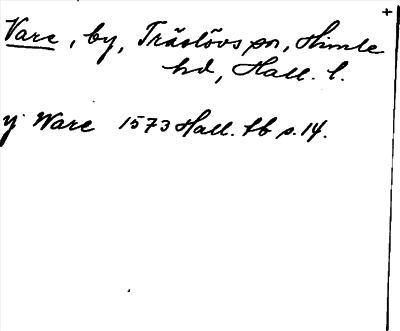 +
Vare, by, Träslövs sn, Himle
hd, Hall. l.
y Ware 1573 Hall. tb s. 14.